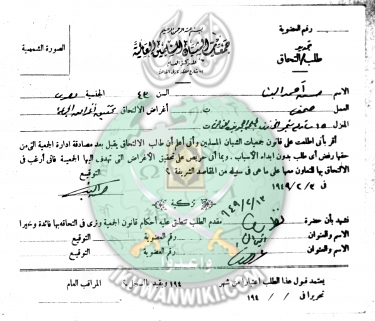 بسم الله الرحمن الرحيم
رقم العضوية
جمعيات الشبان المسلمين العالمية
المركز العام
تجديد
طلب التحاق
الصورة الشمسية
الاسم حسن أحمد البنا السن ٤٣ الجنسية مصرى
العمل صحفى أغراض الالتحاق
المنزل
أقر بأنى اطلعت على قانون جمعيات الشبان المسلمين وأنى أعلم أن طلب الالتحاق يقبل بعد مصادقة ادارة الجمعية التى من
حقها رفض أى طلب بدون ابداء الأسباب . وبما أنى حريص على تحقيق الأغراض التى تهدف اليها الجمعية فانى أرغب فى
الالتحاق بها للتعاون معها على ما هى فى سبيله من المقاصد الشريفة ؟
التوقيع
تزكية
نشهد بأن حضرة مقدم الطلب تنطبق عليه أحكام قانون الجمعية ونرى فى التحاقه بها فائدة وخيرا
الاسم والعنوان رقم العضوية التوقيع
الاسم والعنوان رقم العضوية التوقيع
يعتمد قبول هذا الطلب اعتبارا من شهر ١٩٤ ويقيد بالسجلات
تحريرا فى / / ١٩٤ المراقب العام
وأعدوا
IKHWANWIKI.COM